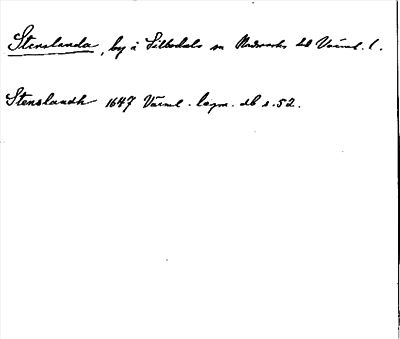 Stenslanda, by i Silbodals sn Nordmarks hd Värml. l.
Stenslandh 1647 Värml. lagm. db s. 52.